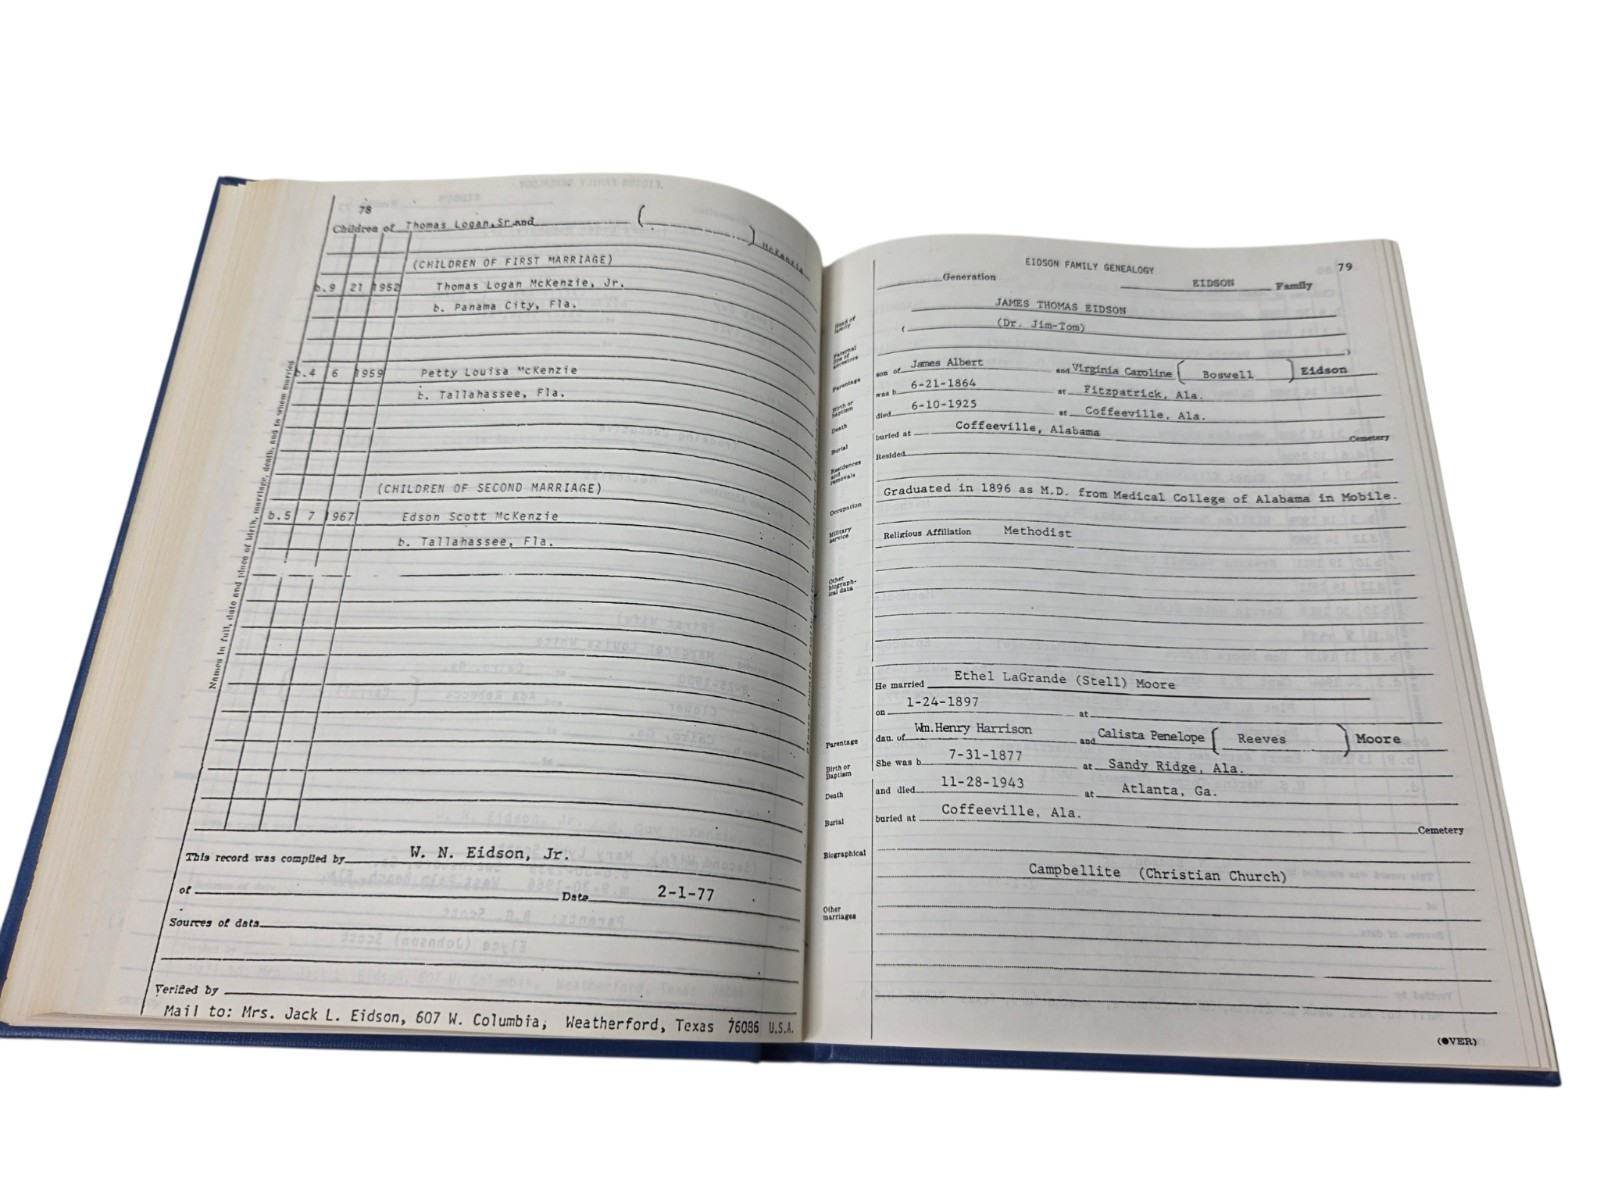 78
Children of Thomas Logan, Sr. and ( ) McKenzie
(CHILDREN OF FIRST MARRIAGE)
b.9 21 1952 Thomas Logan McKenzie, Jr.
b. Panama City, Fla.
b.4 6 1959 Petty Louisa McKenzie
b. Tallahassee, Fla.
(CHILDREN OF SECOND MARRIAGE)
b.5 7 1967 Edson Scott McKenzie
b. Tallahassee, Fla.
Names in full, date and place of birth, marriage, death, and to whom married
This record was compiled by W. N. Eidson, Jr.
of Date 2-1-77
Sources of data
Verified by
Mail to: Mrs. Jack L. Eidson, 607 W. Columbia, Weatherford, Texas 76086 U.S.A.
EIDSON FAMILY GENEALOGY 79
Generation EIDSON Family
Head of family JAMES THOMAS EIDSON
( (Dr. Jim-Tom) )
Paternal line of ancestors
Parentage son of James Albert and Virginia Caroline ( Boswell ) Eidson
Birth or Baptism was b. 6-21-1864 at Fitzpatrick, Ala.
Death died 6-10-1925 at Coffeeville, Ala.
Burial buried at Coffeeville, Alabama Cemetery
Residences and removals Resided
Occupation Graduated in 1896 as M.D. from Medical College of Alabama in Mobile.
Military service Religious Affiliation Methodist
Other biographical data
He married Ethel LaGrande (Stell) Moore
on 1-24-1897 at
Parentage dau. of Wm. Henry Harrison and Calista Penelope ( Reeves ) Moore
Birth or Baptism She was b. 7-31-1877 at Sandy Ridge, Ala.
Death and died 11-28-1943 at Atlanta, Ga.
Burial buried at Coffeeville, Ala. Cemetery
Biographical
Campbellite (Christian Church)
Other marriages
(OVER)